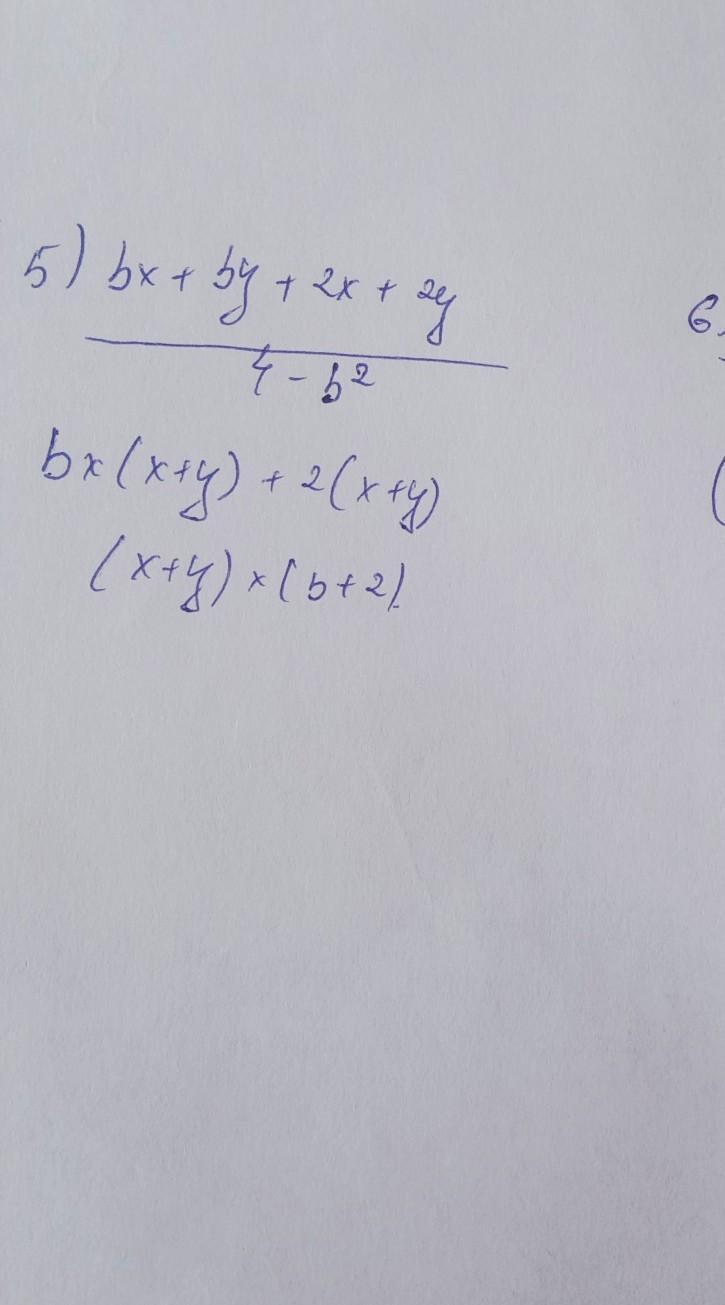 5) bx + by + 2x + 2y
4 - b²
bx(x+y) + 2(x+y)
(x+y) × (b+2)
6
(